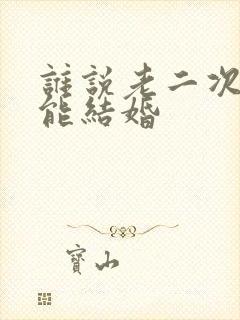 誰說老二次
能結婚
寶山